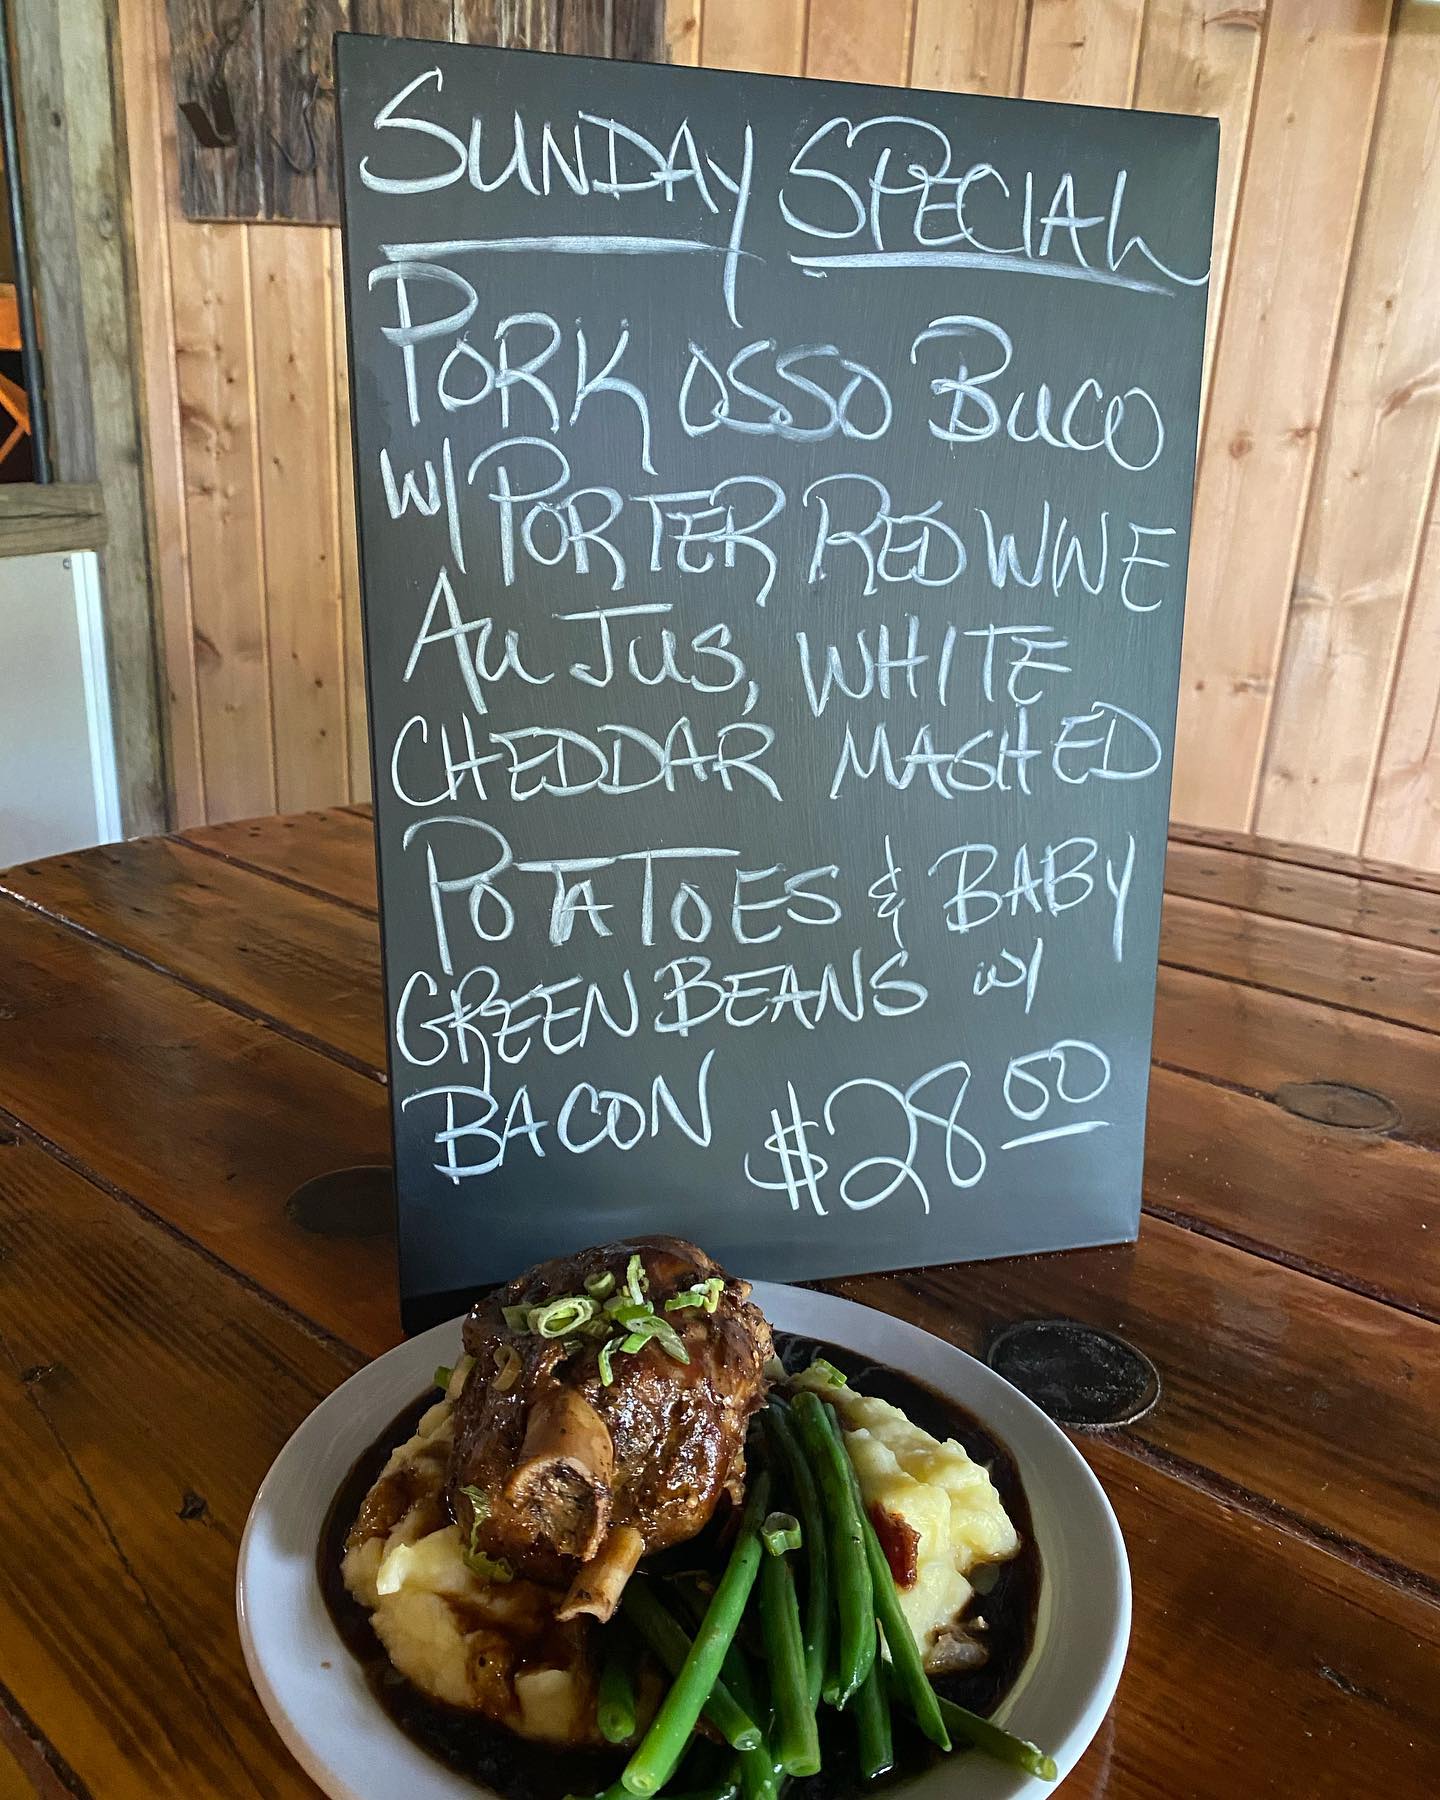 SUNDAY SPECIAL
PORK OSSO BUCO
W/ PORTER RED WINE
AU JUS, WHITE
CHEDDAR MASHED
POTATOES & BABY
GREEN BEANS w/
BACON $28.00